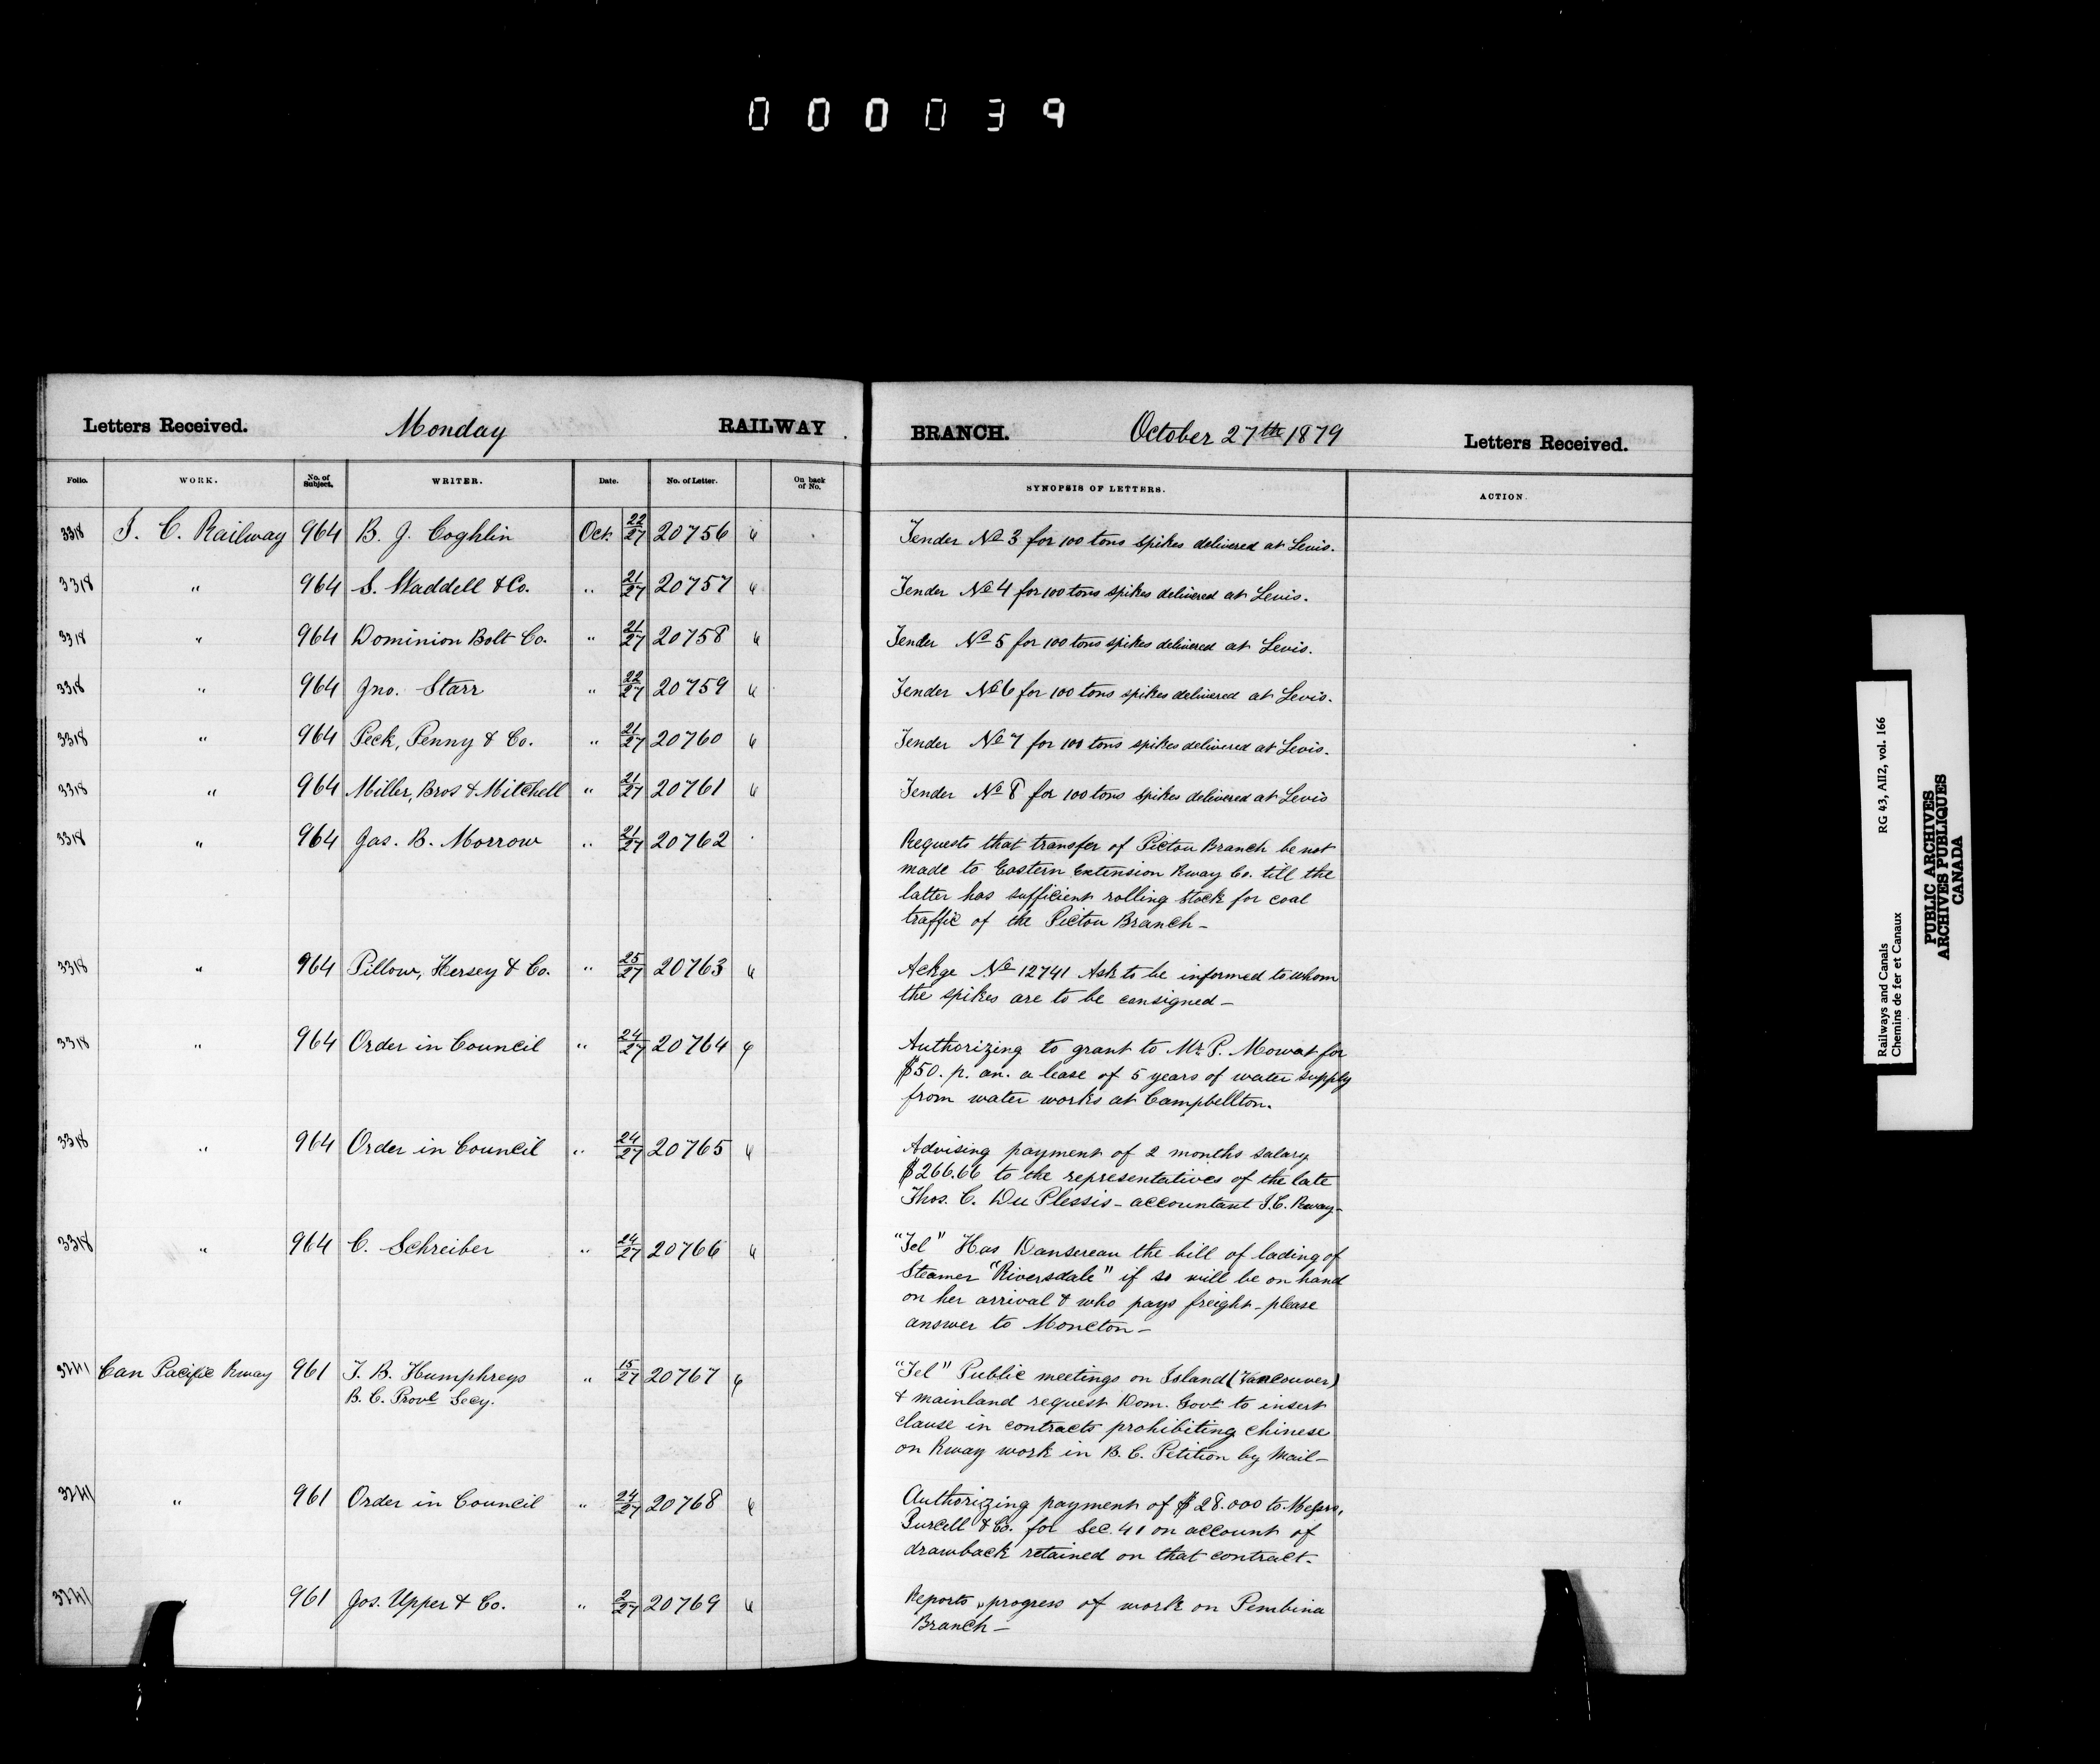 000039
Letters Received. Monday RAILWAY BRANCH. October 27th 1879 Letters Received.
Folio. WORK. No. of Subject. WRITER. Date. No. of Letter. On back of No. SYNOPSIS OF LETTERS. ACTION.
3318 I. C. Railway 964 B. J. Coghlin Oct. 22/27 20756 Tender No 3 for 100 tons spikes delivered at Levis.
3318 " 964 S. Waddell & Co. " 21/27 20757 Tender No 4 for 100 tons spikes delivered at Levis.
3318 " 964 Dominion Bolt Co. " 21/27 20758 Tender No 5 for 100 tons spikes delivered at Levis.
3318 " 964 Jno. Starr " 22/27 20759 Tender No 6 for 100 tons spikes delivered at Levis.
3318 " 964 Peck, Penny & Co. " 21/27 20760 Tender No 7 for 100 tons spikes delivered at Levis.
3318 " 964 Miller, Bros & Mitchell " 21/27 20761 Tender No 8 for 100 tons spikes delivered at Levis
3318 " 964 Jas. B. Morrow " 21/27 20762 Requests that transfer of Pictou Branch be not
made to Eastern Extension Rway Co. till the
latter has sufficient rolling stock for coal
traffic of the Pictou Branch –
3318 " 964 Pillow, Hersey & Co. " 25/27 20763 Ackge No 12741 Ask to be informed to whom
the spikes are to be consigned –
3318 " 964 Order in Council " 24/27 20764 Authorizing to grant to Mr. P. Mowat for
$50. p. an. a lease of 5 years of water supply
from water works at Campbellton.
3318 " 964 Order in Council " 24/27 20765 Advising payment of 2 months salary
$266.66 to the representatives of the late
Thos. C. Du Plessis – accountant I.C. Rway –
3318 " 964 C. Schreiber " 24/27 20766 "Tel" Has Dansereau the bill of lading of
Steamer "Riversdale" if so will be on hand
on her arrival & who pays freight – please
answer to Moncton –
Can Pacific Rway 961 T. B. Humphreys " 15/27 20767 "Tel" Public meetings on Island (Vancouver)
B. C. Provl Secy. & mainland request Dom. Govt to insert
clause in contracts prohibiting Chinese
on Rway work in B. C. Petition by Mail –
" 961 Order in Council " 24/27 20768 Authorizing payment of $28.000 to Messrs.
Purcell & Co. for Sec. 41 on account of
drawback retained on that contract.
" 961 Jos. Upper & Co. " 2/27 20769 Reports progress of work on Pembina
Branch –
Railways and Canals RG 43, AII2, vol. 166
Chemins de fer et Canaux
PUBLIC ARCHIVES
ARCHIVES PUBLIQUES
CANADA